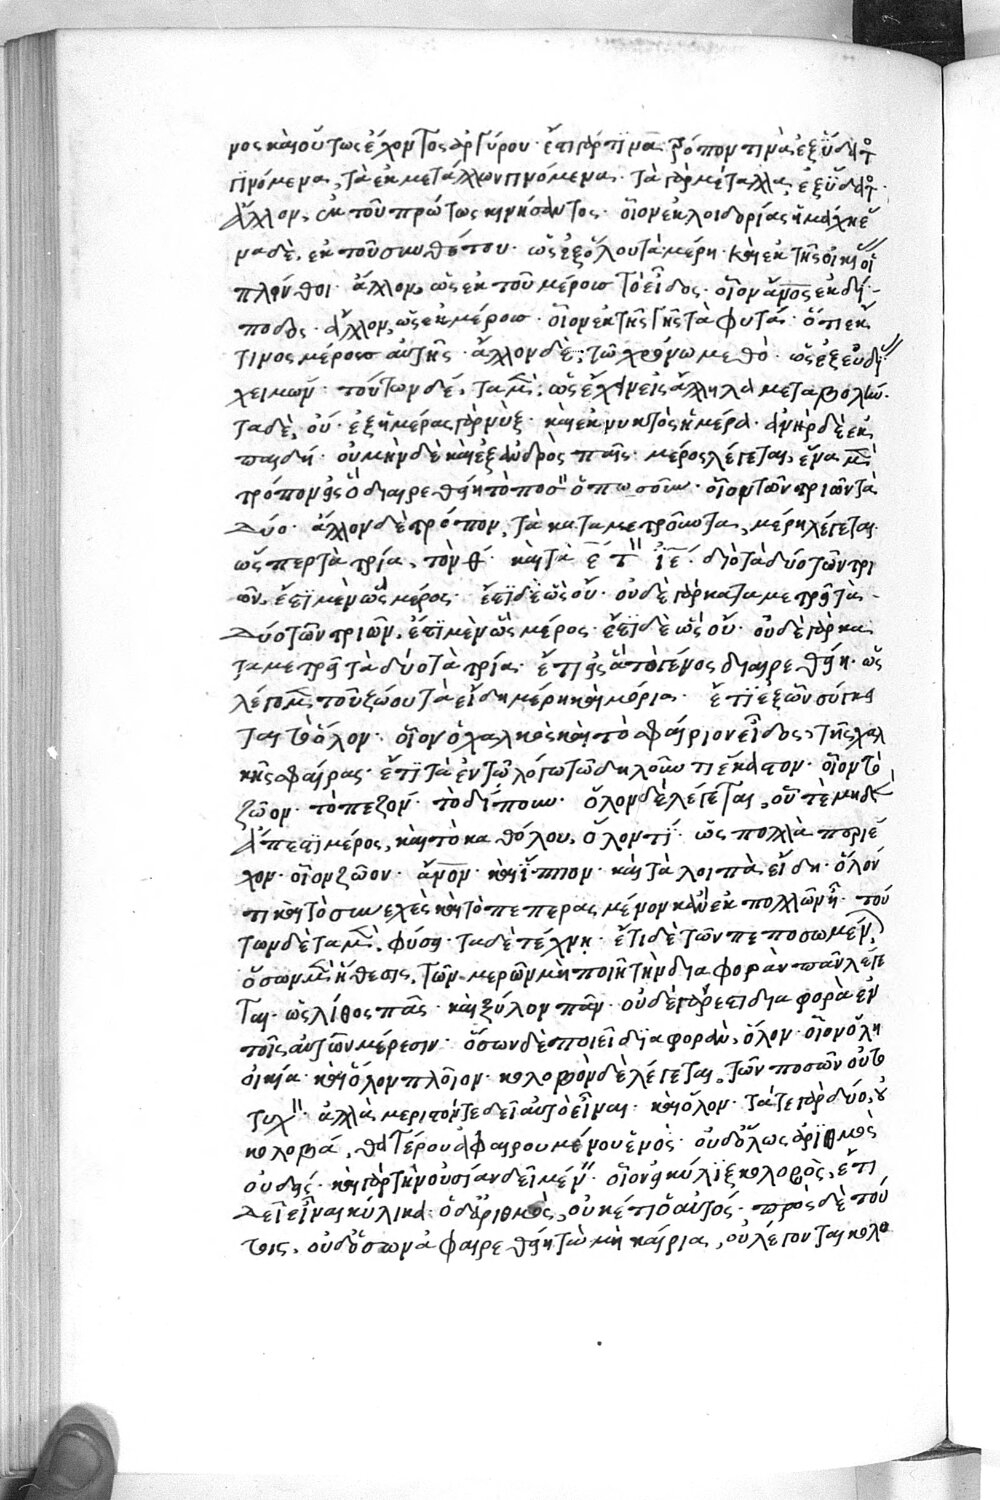 μος καὶ οὕτως ἔχοντος ἀργύρου· ἔτι γὰρ τίμα τρόπον τινὰ ἐξ ὕδατ
γινόμενα, τὰ ἐκ μετάλλων γινόμενα· τὰ γὰρ μέταλλα, ἐξ ὕδατ·
ἄλλον, ἐκ τοῦ πρώτως κινήσαντος· οἷον ἐκ λοιδορίας ἡ μάχη ἕ
να δὲ, ἐκ τοῦ συνθέτου· ὡς ἐξ ὅλου τὰ μέρη· καὶ ἐκ τῆς οἰκί οἱ
πλίνθοι· ἄλλον, ὡς ἐκ τοῦ μέρους τὸ εἶδος· οἷον ἄνος ἐκ δί-
ποδος· ἄλλον, ὡς ἐκ μέρους· οἷον ἐκ τῆς γῆς τὰ φυτά· ὅτι ἐκ
τινος μέρους αὐτῆς· ἄλλον δὲ, τῶ χρόνω μεθὸ· ὡς ἐξ εὐδί
χειμών· τούτων δέ, τὰ μὲν, ὡς ἔχειν εἰς ἄλληλα μεταβολήν·
τὰ δὲ, οὐ· ἐξ ἡμέρας γὰρ νὺξ· καὶ ἐκ νυκτὸς ἡμέρα· ἀνὴρ δὲ ἐκ
παιδός· οὐ μὴν δὲ καὶ ἐξ ἀνδρὸς παῖς· μέρος λέγεται, ἕνα μὲν
τρόπον εἰς ὃ διαιρεθείη τὸ ποσὸν ὁπωσοῦν· οἷον τῶν τριῶν τὰ
δύο· ἄλλον δὲ τρόπον, τὰ καταμετροῦντα, μέρη λέγεται·
ὥσπερ τὰ τρία, τὸν θ· καὶ τὰ ε τὸν ιε· διὸ τὰ δύο τῶν τρι
ῶν, ἔστι μὲν ὡς μέρος· ἔστι δὲ ὡς οὔ· οὐδὲ γὰρ καταμετρεῖ τὰ-
δύο τῶν τριῶν, ἔστι μὲν ὡς μέρος· ἔστι δὲ ὡς οὔ· οὐδὲ γὰρ κα
ταμετρεῖ τὰ δύο τὰ τρία· ἔτι εἰς ἃ τὸ γένος διαιρεθείη· ὡς
λέγομεν τοῦ ζώου τὰ εἴδη μέρη καὶ μόρια· ἔτι ἐξ ὧν σύγκει
ται τὸ ὅλον· οἷον ὁ χαλκὸς καὶ τὸ σφαίριον εἶδος, τῆς χαλ
κῆς σφαίρας· ἔτι τὰ ἐν τῶ λόγω τῶ δηλοῦντι ἕκαστον· οἷον τὸ
ζῶον· τὸ πεζόν· τὸ δίπουν· ὅλον δὲ λέγεται, οὗ τε μηδὲν
ἄπεστι μέρος, καὶ τὸ καθόλου, ὅλον τί· ὡς πολλὰ περιέ
χον· οἷον ζῶον· ἄνον· καὶ ἵππον· καὶ τὰ λοιπὰ εἴδη· ὅλον
τι καὶ τὸ συνεχὲς καὶ τὸ πεπερασμένον κἂν ἐκ πολλῶν ᾖ· τού
των δὲ τὰ μὲν, φύσει· τὰ δὲ τέχνη· ἔτι δὲ τῶν πεποσωμέν,
ὅσων μὲν ἡ θέσις, τῶν μερῶν μὴ ποιῆ τὴν διαφορὰν πᾶν λέγε
ται· ὡς λίθος πᾶς· καὶ ξύλον πᾶν· οὐδὲ γάρ ἐστι διαφορὰ ἐν
τοῖς αὐτῶν μέρεσιν· ὅσων δὲ ποιεῖ διαφοράν, ὅλον· οἷον ὅλη
οἰκία· καὶ ὅλον πλοῖον· κολοβὸν δὲ λέγεται, τῶν ποσῶν οὐ τὸ
τυχὸν· ἀλλὰ μεριστόν τε δεῖ αὐτὸ εἶναι· καὶ ὅλον· τά τε γὰρ δύο, οὐ
κολοβά, θατέρου ἀφαιρουμένου ἑνός· οὐδ' ὅλως ἀριθμὸς
οὐδείς· καὶ γὰρ τὴν οὐσίαν δεῖ μέν· οἷον εἰ κύλιξ κολοβὸς, ἔτι
δεῖ εἶναι κύλικα· ὁ δ' ἀριθμὸς, οὐκέτι ὁ αὐτός· πρὸς δὲ τού
τοις, οὐδ' ὅσων ἀφαιρεθείη τὼ μὴ καίρια, οὐ λέγονται κολο